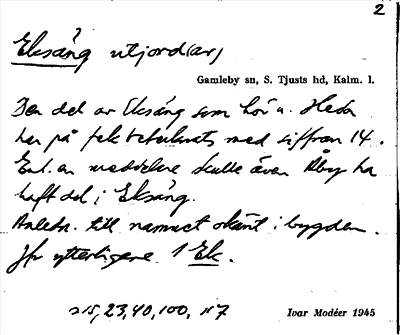 2
Eksång utjord(ar)
Gamleby sn, S. Tjusts hd, Kalm. l.
Den del av Eksång som hör u. Heda
har på ek betecknats med siffran 14.
Enl. en meddelare skulle även Åby ha
haft del i Eksång.
Anledn. till namnet okänt i bygden.
Jfr ytterligare 1 Ek.
215, 23, 40, 100, 117
Ivar Modéer 1945